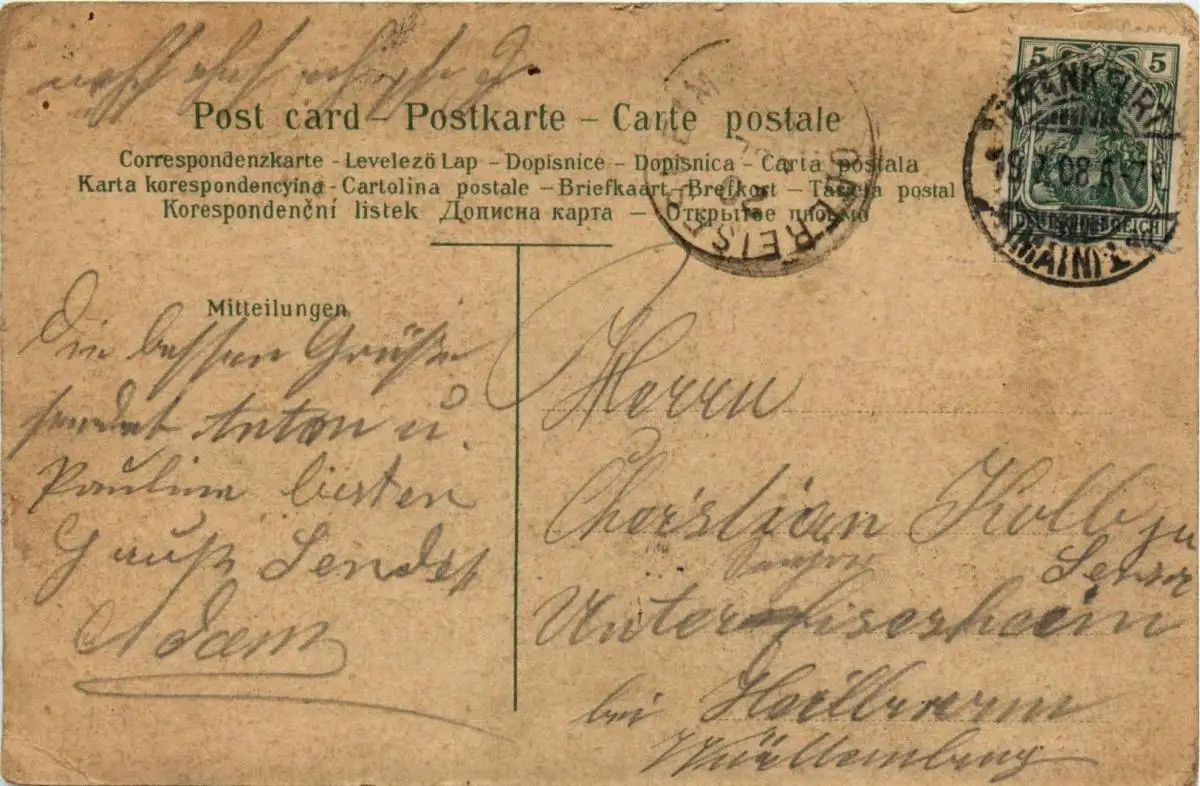 Post card – Postkarte – Carte postale
Correspondenzkarte - Levelező Lap - Dopisnice - Dopisnica - Carta postala
Karta korespondencyina - Cartolina postale - Briefkaart - Brefkort - Tarjeta postal
Korespondenční listek Дописна карта - Открытое письмо
5 5
FRANKFURT
19.7.08.6-7N
DEUTSCHES REICH
(MAIN) 1
Mitteilungen
Die besten Grüße
sendet Anton u.
Paulina besten
Gruß Sendet
Adam
Herrn
Christian Kolb
Untereisesheim
bei Heilbronn
Württemberg